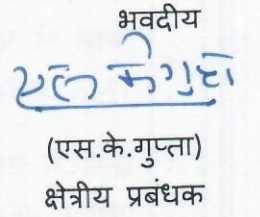 भवदीय
एस के गुप्ता
(एस.के.गुप्ता)
क्षेत्रीय प्रबंधक